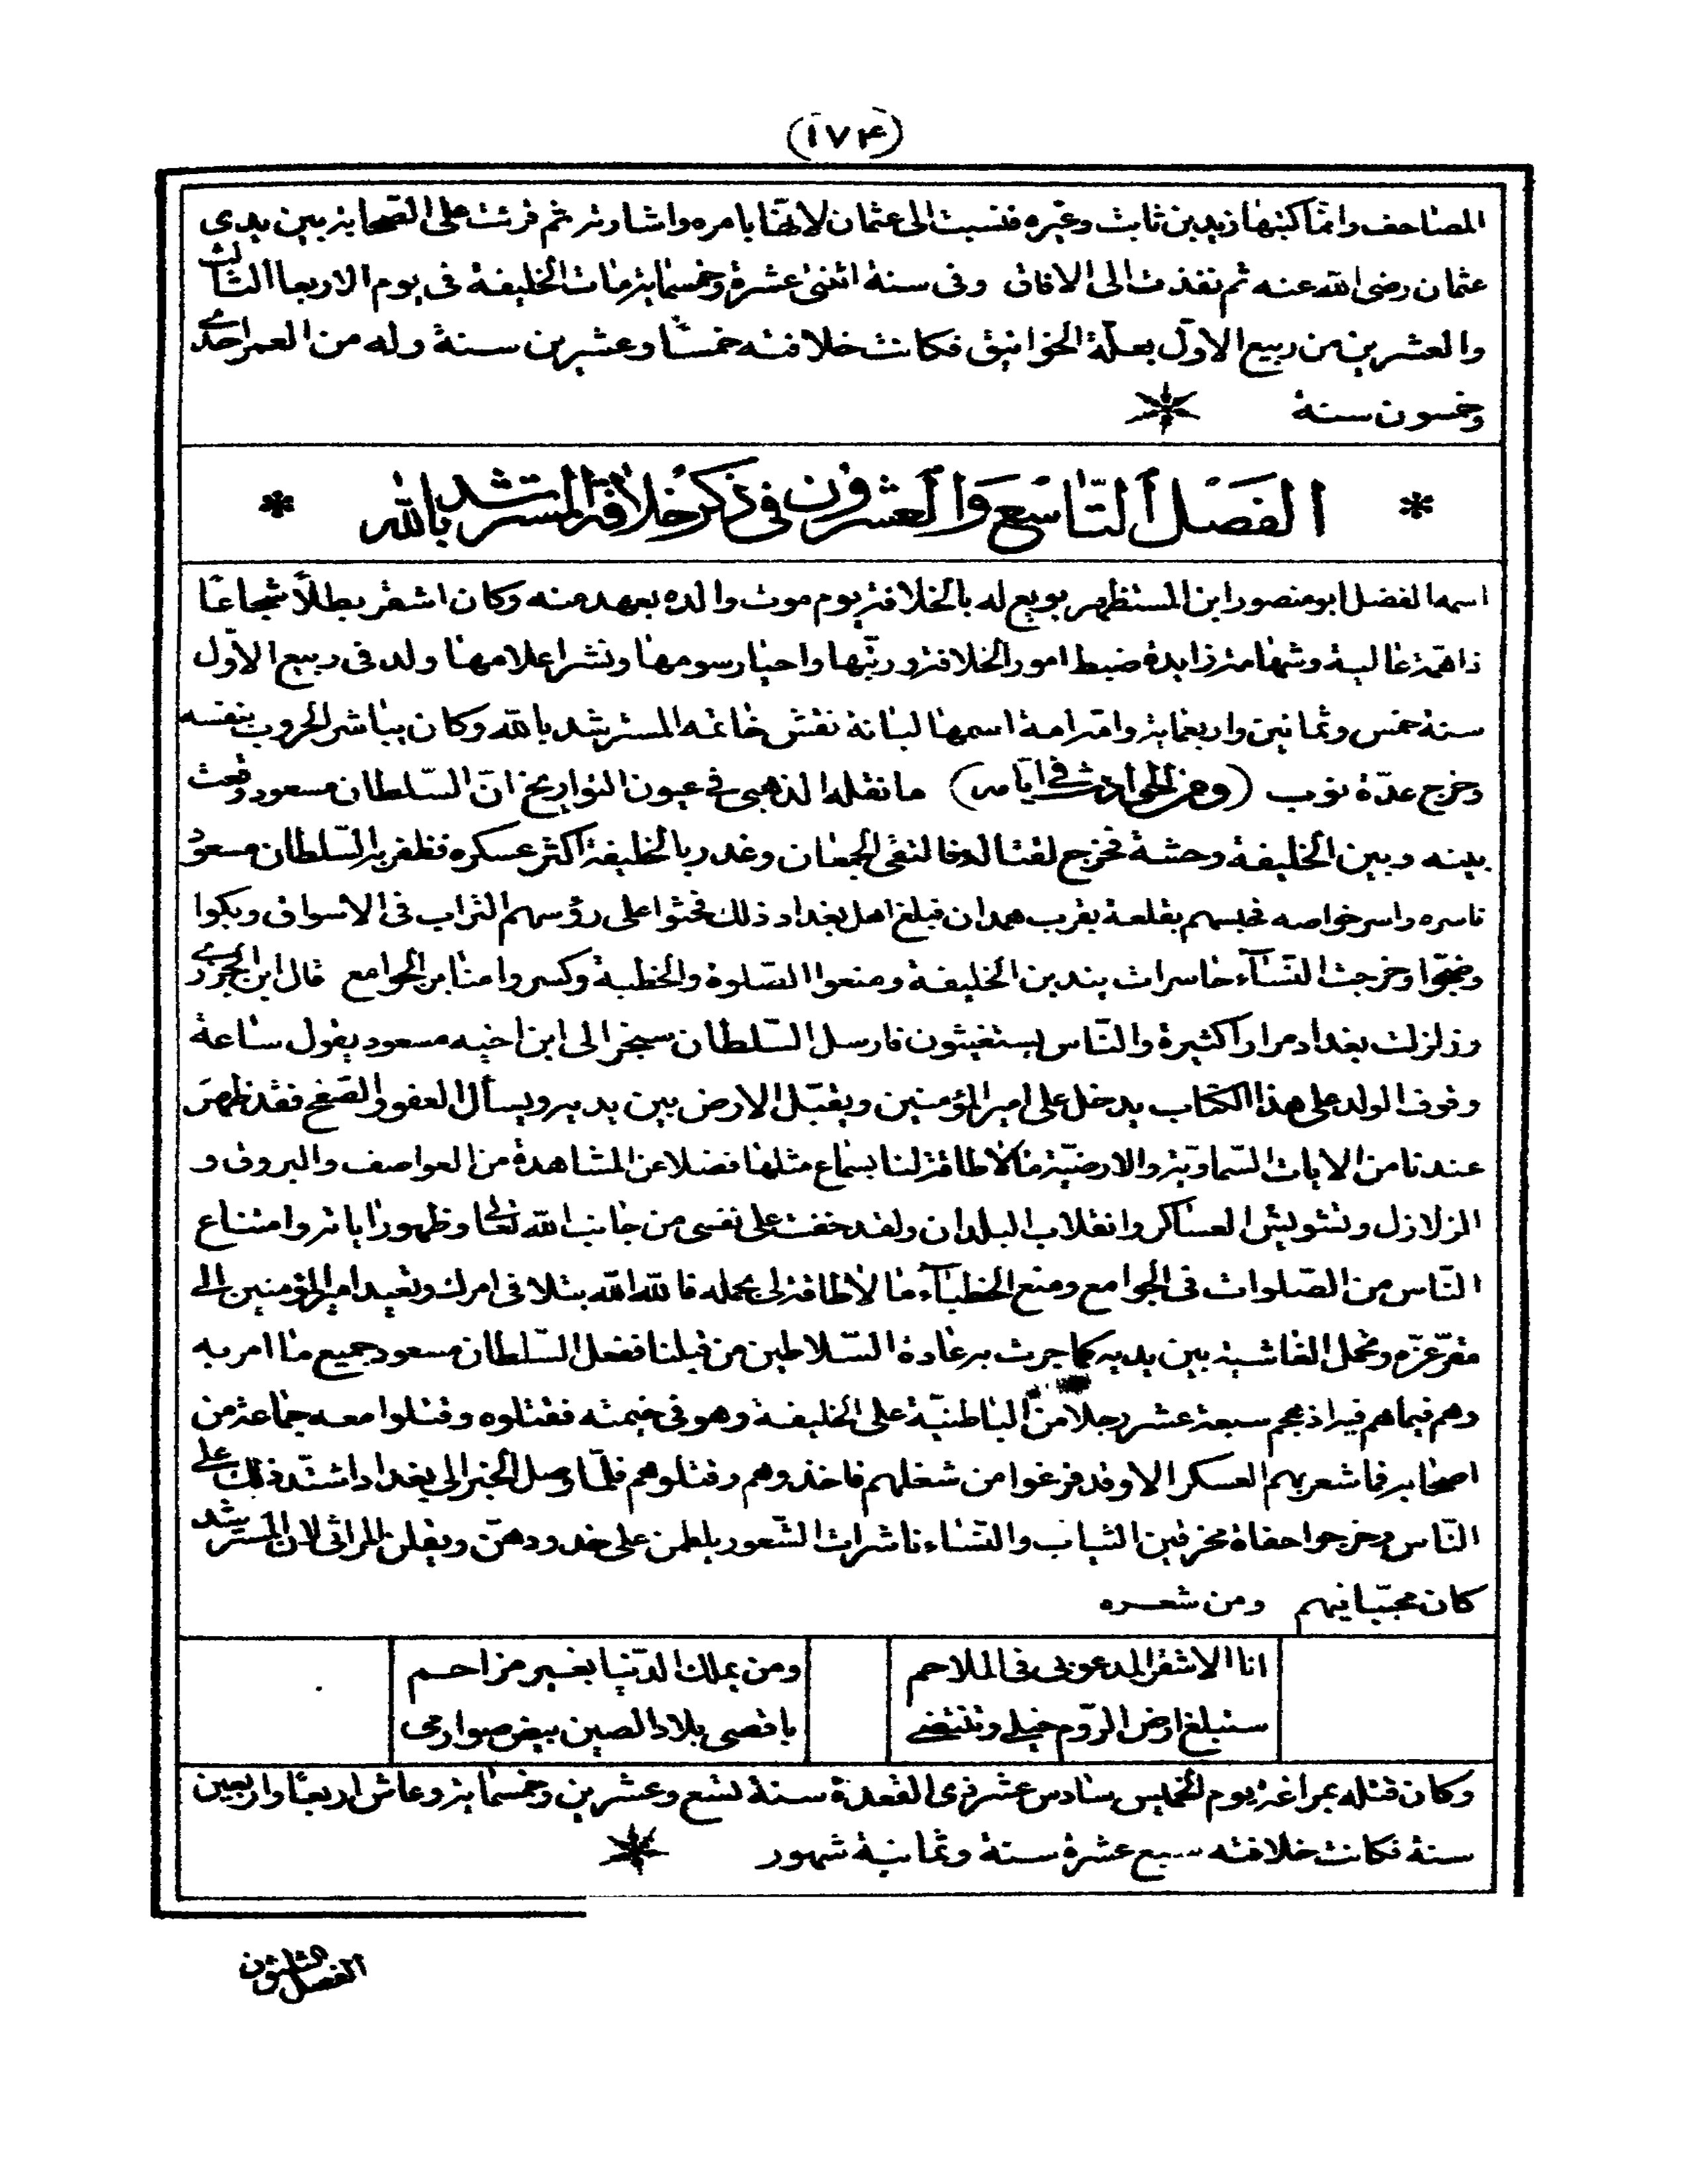 (١٧٤)
المصاحف وانما كتبها زيد بن ثابت وغيره فنسبت الى عثمان لانها بامره واشارته ثم قرئت على الصحابة بين يدى
عثمان رضى الله عنه ثم نفذت الى الافاق وفى سنة اثنتى عشرة وخمسماية مات الخليفة فى يوم الاربعا الثالث
والعشرين من ربيع الاوّل بعلّة الخوانيق فكانت خلافته خمسًا وعشرين سنة وله من العمر احدى
وخمسون سنة
* الفصل التّاسع والعشرون فى ذكر خلافة المسترشد بالله *
اسمه الفضل ابو منصور ابن المستظهر بويع له بالخلافة يوم موت والده بعهد منه وكان اشقر بطلاً شجاعًا
ذا همّة عالية وشهامة زايدة ضبط امور الخلافة ورتّبها واحيا رسومها ونشر اعلامها ولد فى ربيع الاوّل
سنة خمس وثمانين واربعماية وامّه امة اسمها لبانة نقش خاتمه المسترشد بالله وكان يباشر الحروب بنفسه
وخرج عدّة نوب (ومن الحوادث فى ايّامه) ما نقله الذهبى فى عيون التواريخ انّ السّلطان مسعود وقعت
بينه وبين الخليفة وحشة فخرج لقتاله فالتقى الجمعان وغدر بالخليفة اكثر عسكره فظفر به السّلطان مسعود
فاسره واسر خواصه فحبسهم بقلعة بقرب همدان فبلغ اهل بغداد ذلك فحثوا على رؤسهم التراب فى الاسواق وبكوا
وضجّوا وخرجت النّسآء حاسرات يندبن الخليفة ومنعوا الصّلوة والخطبة وكسروا منابر الجوامع قال ابن الجوزى
وزلزلت بغداد مرارا كثيرة والنّاس يستغيثون فارسل السّلطان سنجر الى ابن اخيه مسعود يقول ساعة
وقوف الولد على هذا الكتاب يدخل على امير المؤمنين ويقبّل الارض بين يديه ويسأل العفو والصّفح فقد ظهر
عندنا من الايات السّماويّة والارضيّة ما لا طاقة لنا بسماع مثلها فضلا عن المشاهدة من العواصف والبروق و
الزلازل وتشويش العساكر وانقلاب البلدان ولقد خفت على نفسى من جانب الله تعالى وظهور اياته وامتناع
النّاس من الصّلوات فى الجوامع ومنع الخطبآء ما لا طاقة لى بحمله فالله الله بتلافى امرك وتعيد امير المؤمنين الى
مقرّ عزّه وتحمل الغاشية بين يديه كما جرت به عادة السّلاطين من قبلنا ففعل السّلطان مسعود جميع ما امر به
وهم فيما هم فيه اذ هجم سبعة عشر رجلا من الباطنيّة على الخليفة وهو فى خيمته فقتلوه وقتلوا معه جماعة من
اصحابه فما شعر بهم العسكر الا وقد فرغوا من شغلهم فاخذوهم وقتلوهم فلمّا وصل الخبر الى بغداد اشتدّ ذلك على
النّاس وخرجوا حفاة مخرقين الثياب والنّساء ناشرات الشّعور يلطمن على خدودهنّ ويقلن المراثى لان المسترشد
كان محبّبا فيهم ومن شعره
انا الاشقر المدعو بى فى الملاحم ومن يملك الدّنيا بغير مزاحم
ستبلغ ارض الرّوم خيلى وتنتضى باقصى بلاد الصين بيض صوارمى
وكان قتله بمراغة يوم الخميس سادس عشر ذى القعدة سنة تسع وعشرين وخمسماية وعاش اربعًا واربعين
سنة فكانت خلافته سبع عشرة سنة وثمانية شهور
الفصل الثلثون